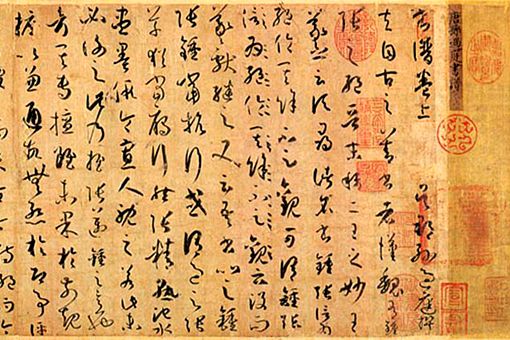 唐孫過庭書譜
書譜卷上 吳郡孫過庭撰
夫自古之善書者漢魏有鍾
張之絕晉末稱二王之妙王
羲之云頃尋諸名書鍾張信為
絕倫其餘不足觀可謂鍾張
為絕倫其餘不足觀云沒而
羲獻繼之又云吾書比之鍾
張鍾當抗行或謂過之張
草猶當雁行然張精熟池水
盡墨假令寡人耽之若此未
必謝之此乃推張邁鍾之意也
考其專擅雖未果於前規
摭以兼通故無慙於即事評